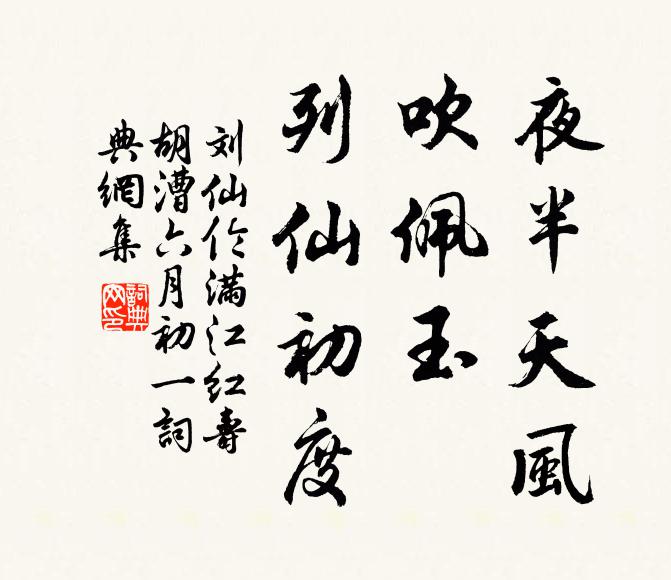 夜半天風
吹佩玉
列仙初度
刘仙伦满江红壽
胡漕六月初一詞
典網集
詞典
网印